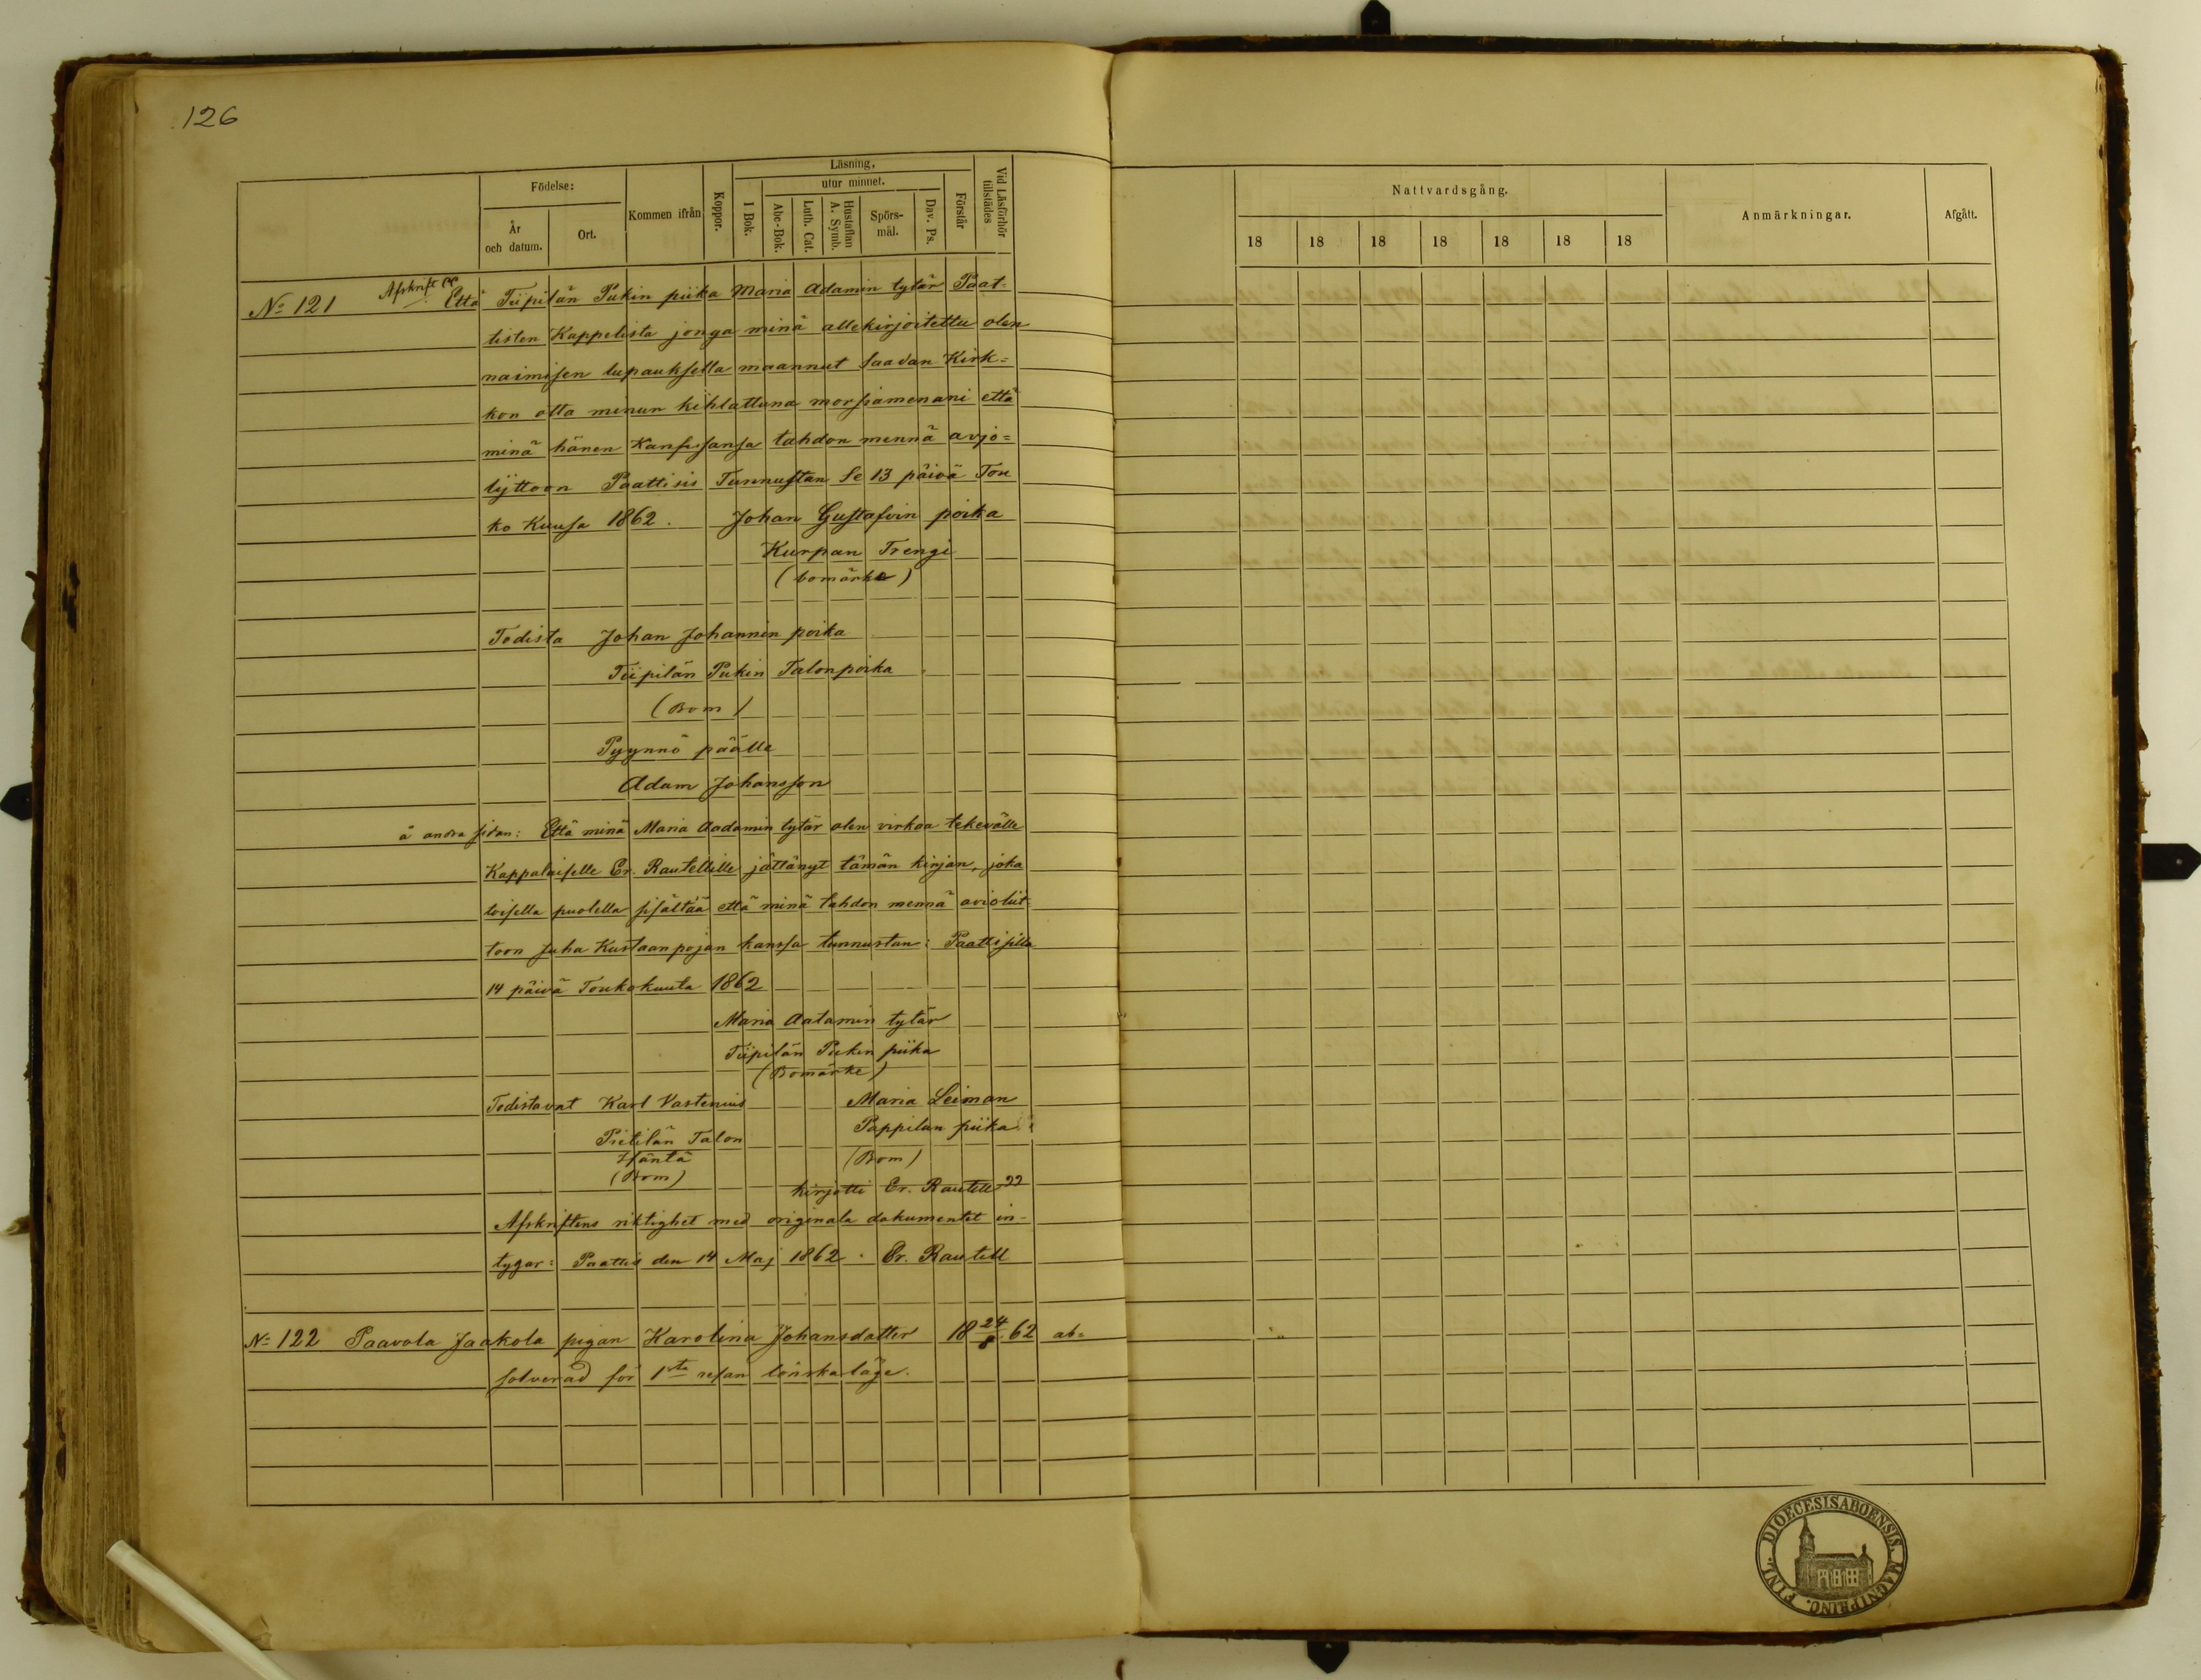 126
Födelse:
År och datum.
Ort.
Kommen ifrån
Koppor.
Läsning.
I Bok.
utur minnet.
Abc-Bok.
Luth. Cat.
Hustaflan A. Symb.
Spörs-mål.
Dav. Ps.
Förstår
Vid Läsförhör tillstädes
Nattvardsgång.
18 18 18 18 18 18 18
Anmärkningar.
Afgått.
No 121 Afskrift Että Tiipilän Pukin piika Maria Adamin tytär Paat-
tisten Kappelista jonga minä allekirjoitettu olen
naimisen lupauksella maannut saadan Kirk=
kon otta minun kihlattuna morsiamenani että
minä hänen Kanssansa tahdon mennä avjo=
lijttoon Paattisis Tunnustan Se 13 päivä Tou
ko Kuusa 1862. Johan Gustafvin poika
Kurpan Trengi
(bomärke)
Todista Johan Johannin poika
Tiipilän Pukin Talonpoika
(Bom)
Pyynnö päälle
Adam Johansson
å andra sidan: Että minä Maria Aadamin tytär olen virkaa tekevälle
Kappalaiselle Er. Rautellille jättänyt tämän kirjan, joka
toisella puolella sisältää että minä tahdon mennä avioliit
toon Juha Kustaanpojan kanssa tunnustan: Paattisilla
14 päivä Toukokuuta 1862
Maria Aatamin tytär
Tiipilän Pukin piika
(Bomärke)
Todistavat Karl Vastenius Maria Leiman
Pietilän Talon Pappilan piika
Isäntä (Bom)
(Bom)
kirjotti Er. Rautell"
Afskriftens riktighet med originala dokumentet in-
tygar: Paattis den 14 Maj 1862. Er. Rautell
No 122 Paavola Jaakola pigan Karolina Johansdotter 18 24/8 62 ab=
solverad för 1sta resan lönskaläge.
FINL. DIOECESIS ABOENSIS. MAGNI PRINC.